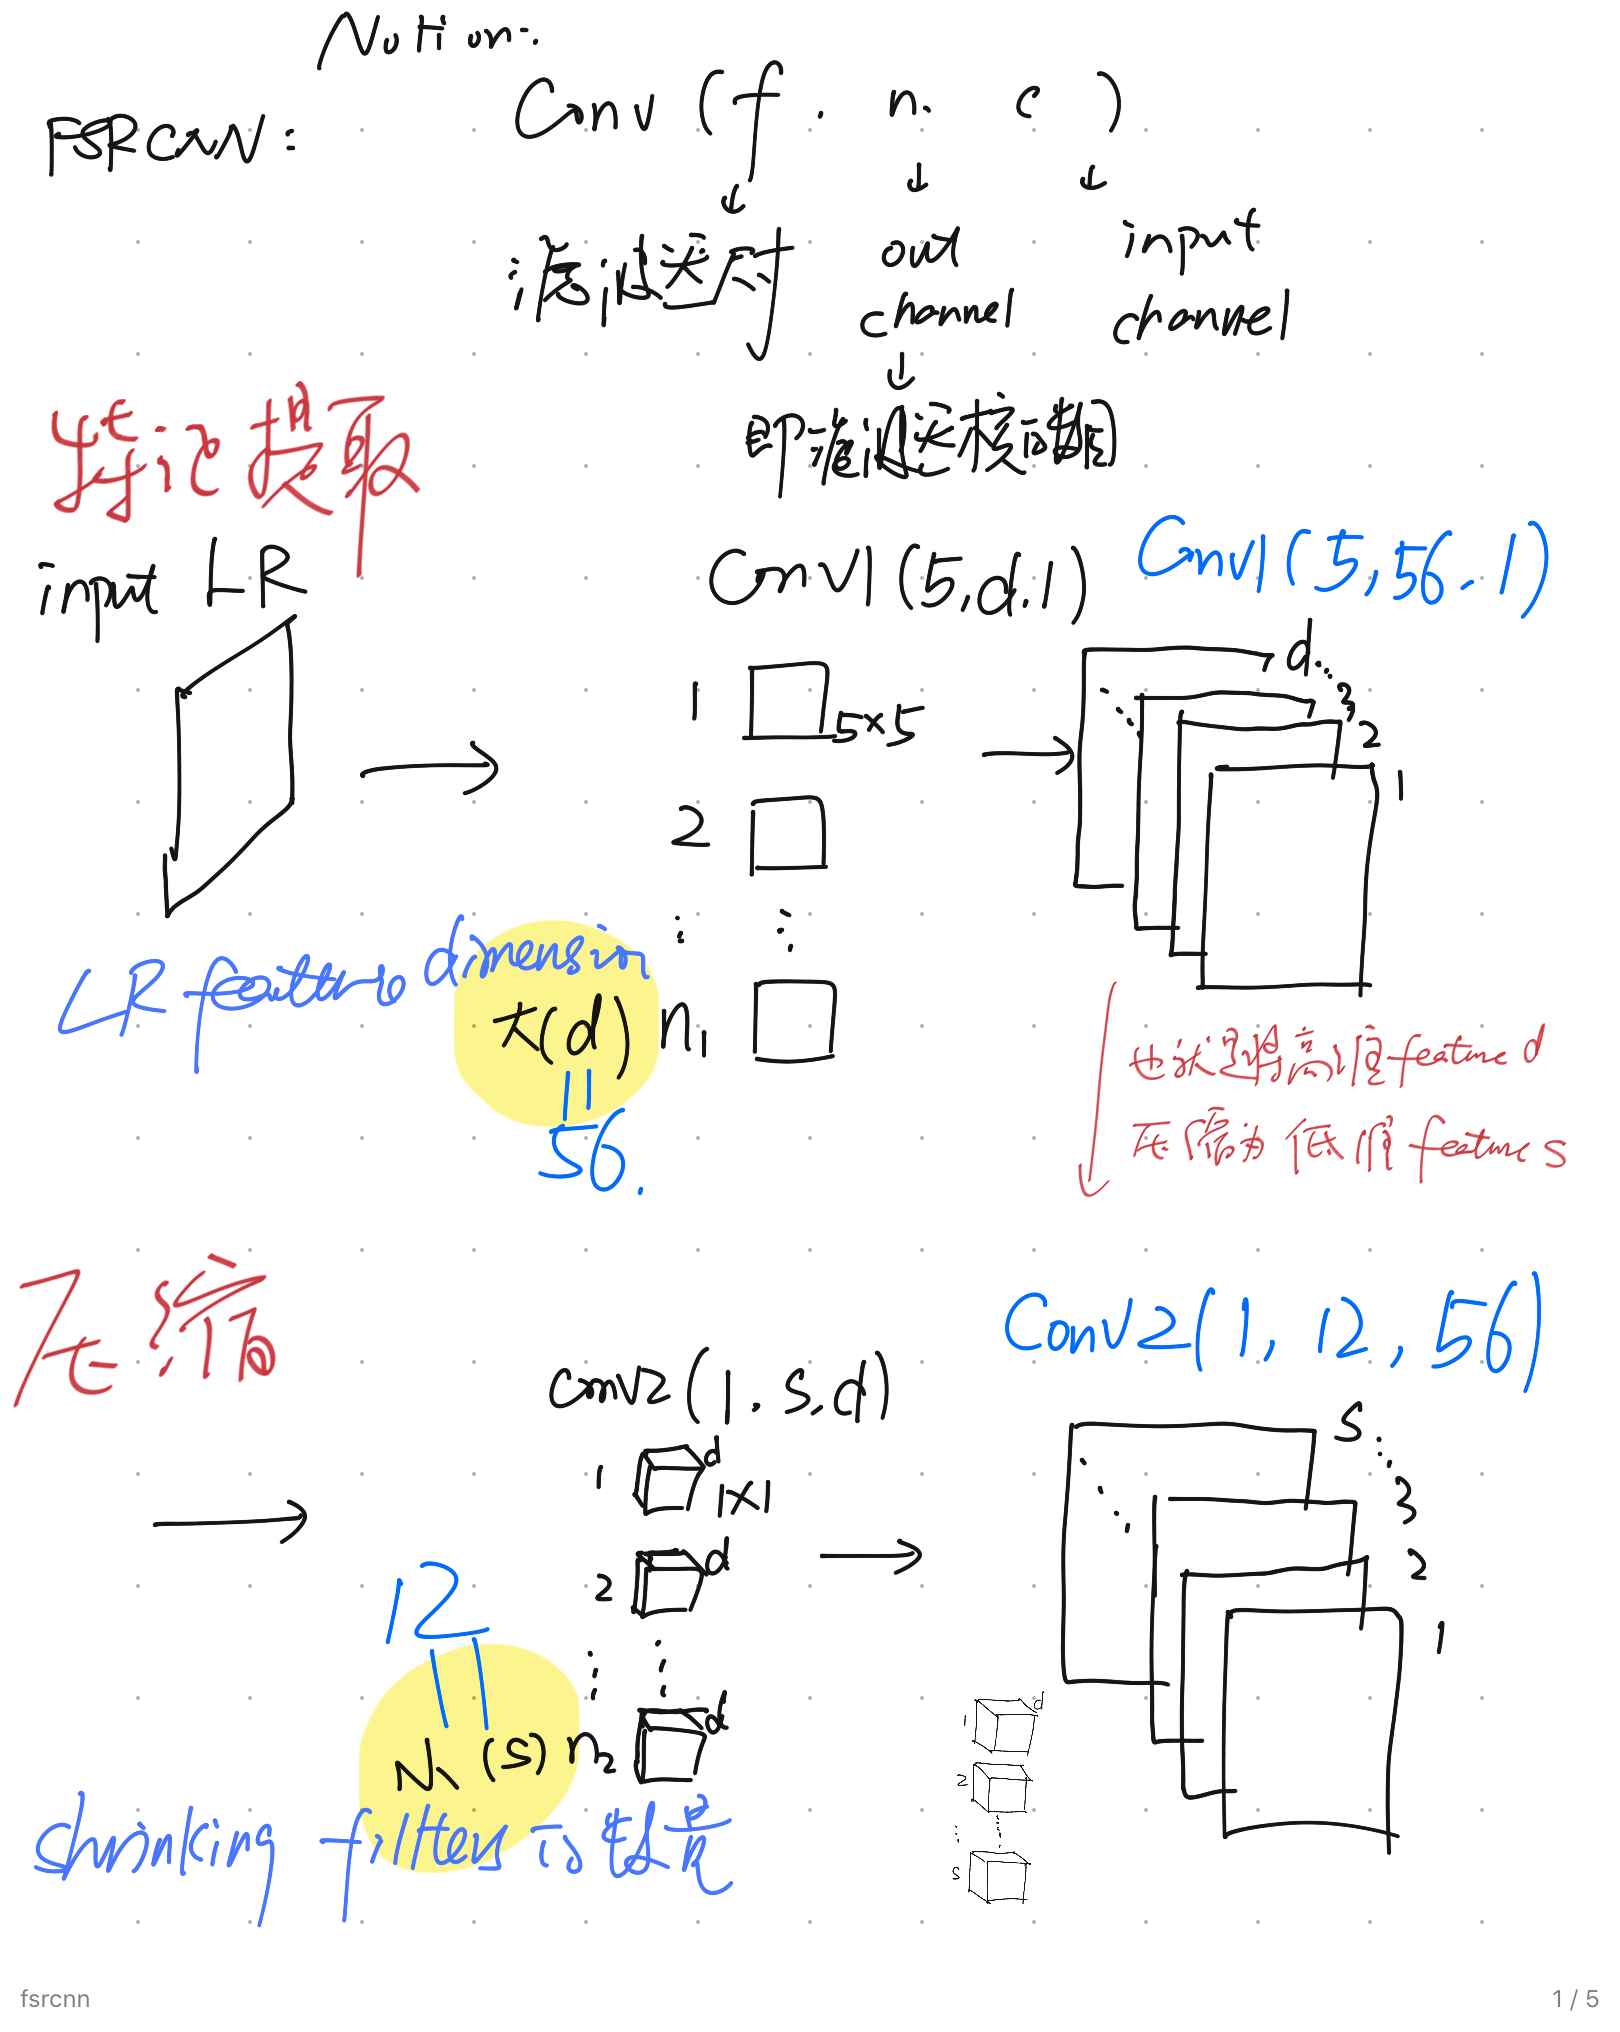 Notion:
FSRCNN:
Conv (f. n. c )
滤波尺寸
out
channel
input
channel
即滤波核的数目
特征提取
input LR
Conv1(5,d.1)
Conv1(5,56.1)
1
5×5
2
n1
d...
3
2
1
LR feature dimension
大(d)
56.
也就是将高维feature d
压缩为 低维 feature s
压缩
Conv2(1, 12, 56)
conv2(1. s,d)
1
d
1×1
2
d
n2
d
12
小 (s)
shrinking filters的数量
s
3
2
1
1
d
2
s
fsrcnn
1 / 5